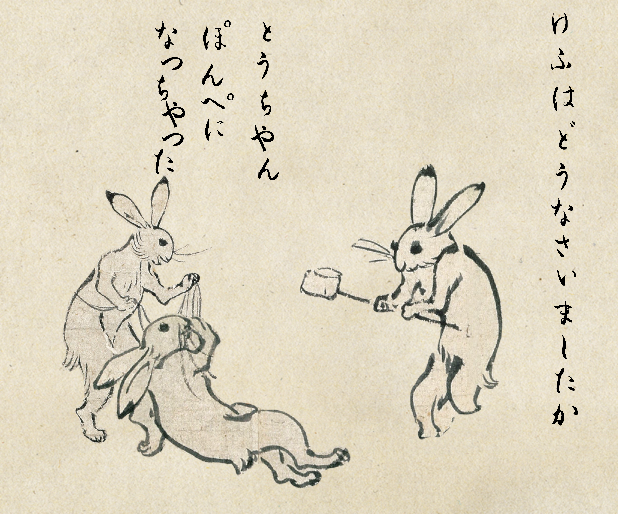 けふはどうなさいましたか
とうちやん
ぽんぺに
なつちやつた